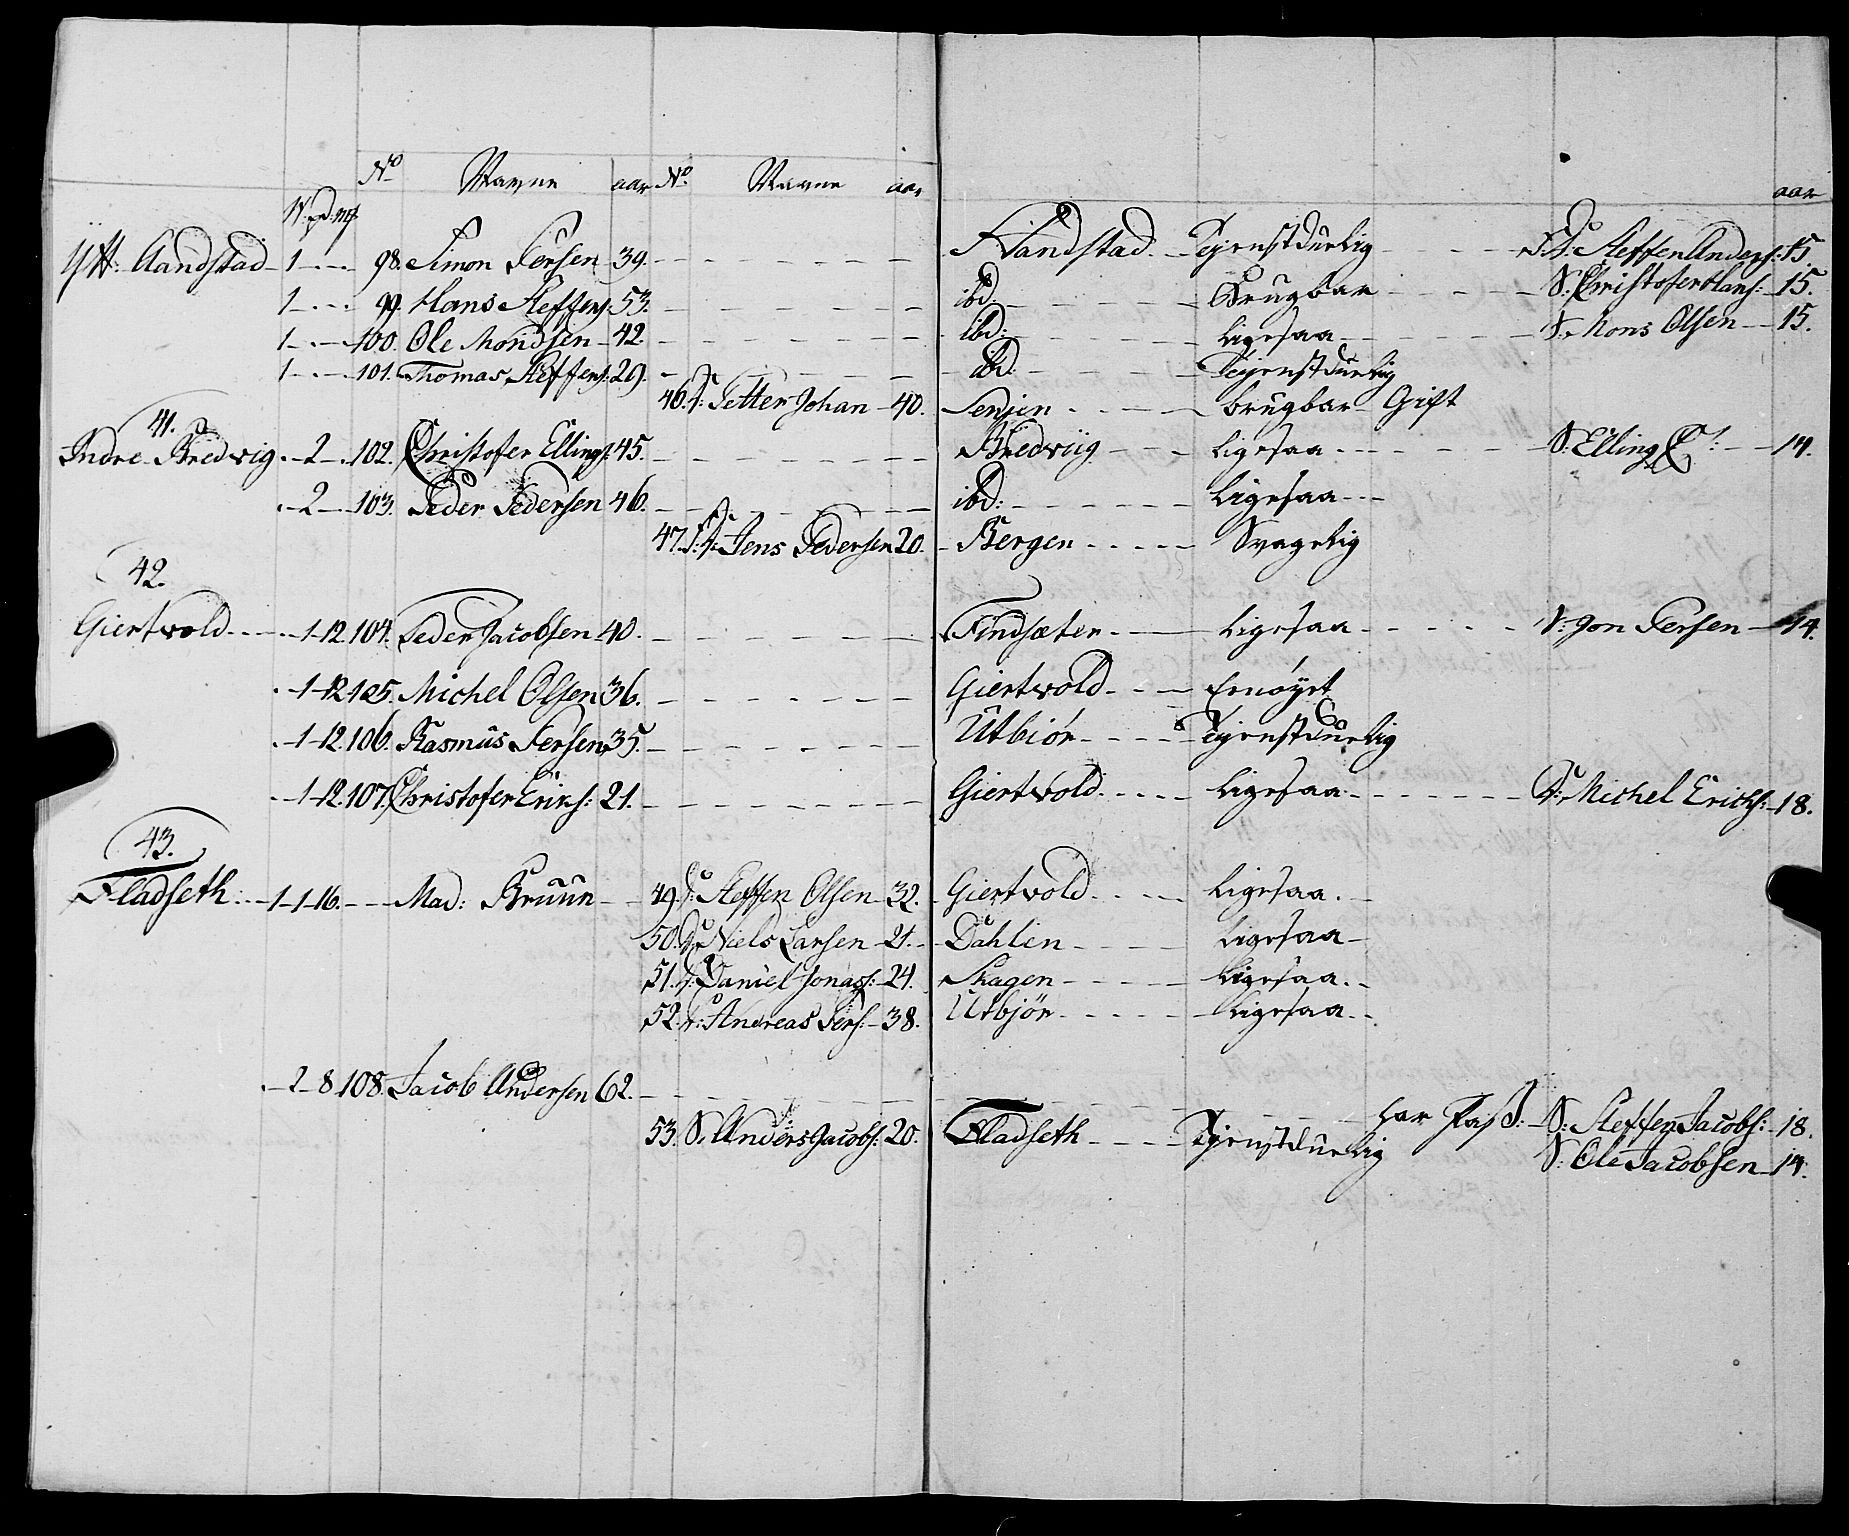 No Navne aar No Navne aar aar
W: pd: mk
Ytt: Aandstad 1 98. Simon Persen 39. Aandstad Tjenstduelig Steffen Anders: 15.
1 99. Hans Steffens: 53. ibd: Brugbar S: Christofer Hans: 15.
1 100. Ole Mondsen 42. ibd: Ligesaa S. Mons Olsen 15.
1 101. Thomas Steffens: 29. ibd: Tjenstduelig
46. T: Petter Johan 40. Senjen brugbar Gift
41.
Indre Bredvig 2 102. Christofer Ellings: 45. Bredviig Ligesaa S: Elling C: 14.
2 103. Peder Pedersen 46. ibd: Ligesaa
47. Jens Pedersen 20. Bergen Svagelig
42.
Giertvold 1-12. 104. Peder Jacobsen 40. Findsæter Ligesaa Jon Persen 14.
1-12. 105. Michel Olsen 36. Giertvold Ernøyet
1-12. 106. Rasmus Persen 35. Utbiør Tjenstduelig
1-12. 107. Christofer Erichs: 21. Giertvold Ligesaa T: Michel Erichs: 18.
43.
Fladseth: 1-1-16. Mad: Bruun 49. T: Steffen Olsen 32. Giertvold Ligesaa.
50. T: Niels Larsen 21. Dahlen Ligesaa
51. T: Daniel Jonas: 24. Skagen Ligesaa.
52. T: Andreas Pers: 38. Utbjør Ligesaa
2-8. 108. Jacob Andersen 62. har Pass: S: Steffen Jacobs: 18.
53. S. Anders Jacobs: 20. Fladseth Tjenstduelig S: Ole Jacobsen 14.